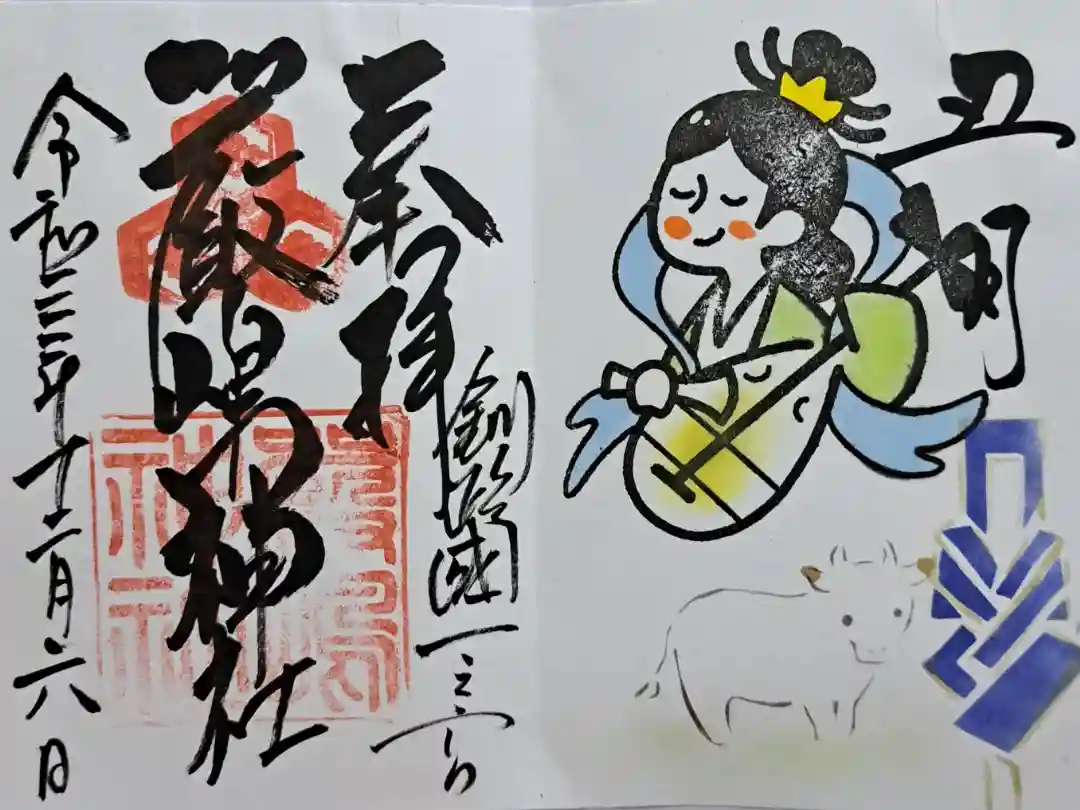 丑
釧路國一之宮
奉拝
厳島神社
令和三年十二月六日